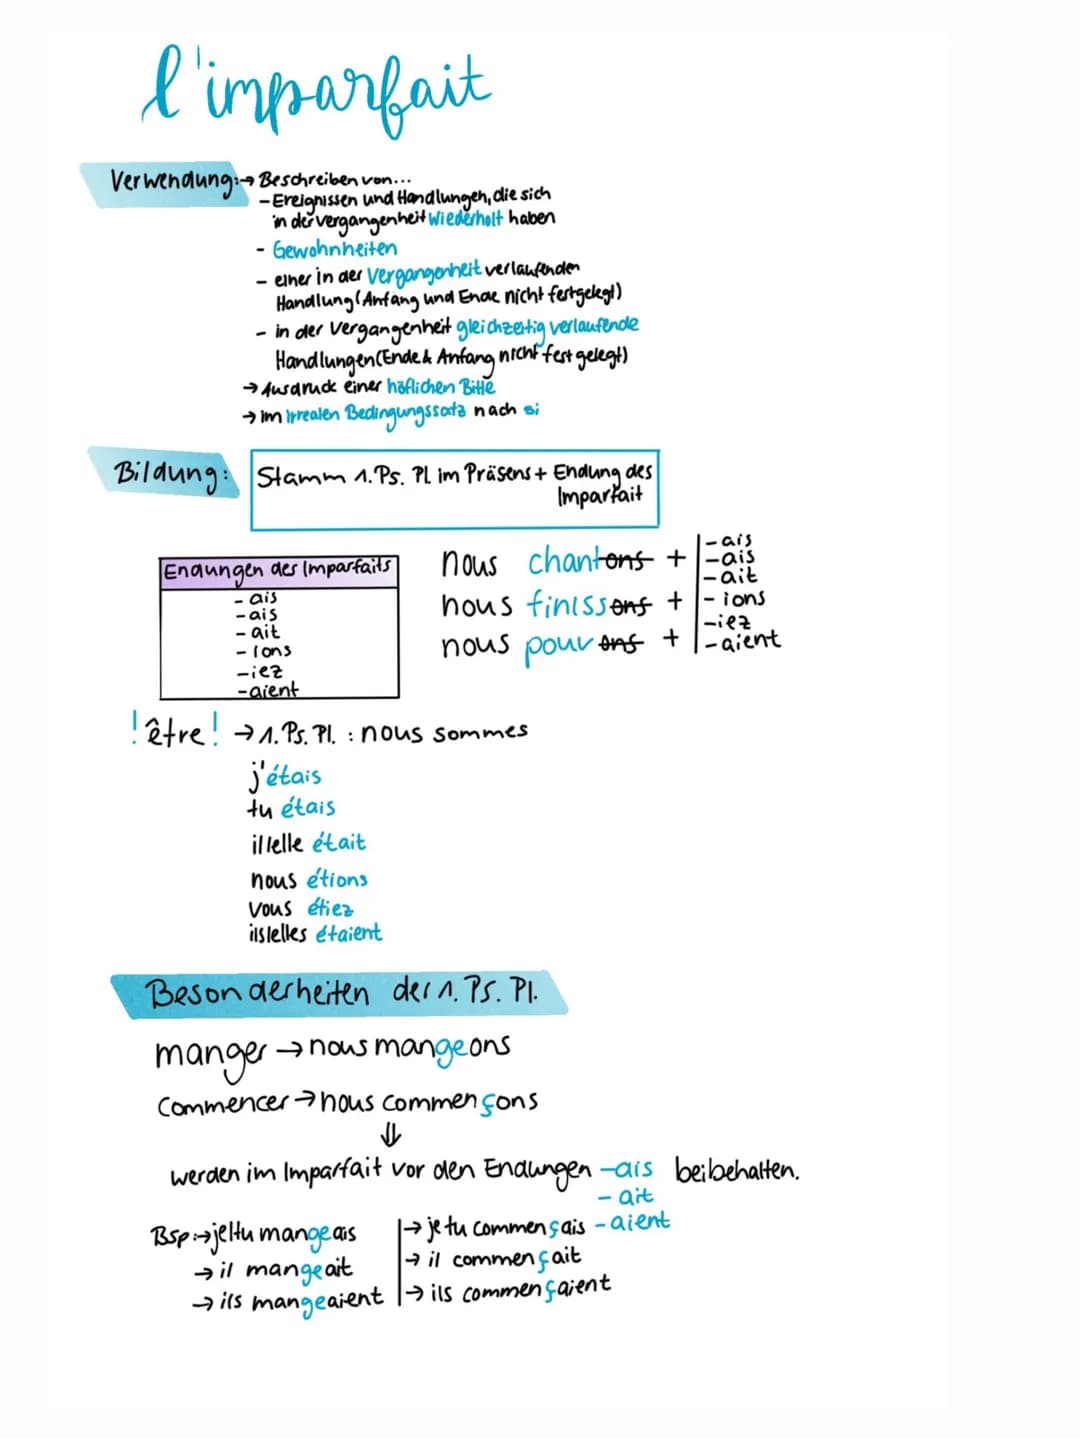 l'imparfait
Verwendung:→ Beschreiben von...
- Ereignissen und Handlungen, die sich
in der Vergangenheit Wiederholt haben
- Gewohnheiten
- einer in der Vergangenheit verlaufenden
Handlung (Anfang und Ende nicht festgelegt)
- in der Vergangenheit gleichzeitig verlaufende
Handlungen (Ende & Anfang nicht festgelegt)
→ Ausdruck einer höflichen Bitte
→ im irrealen Bedingungssatz nach si
Bildung: Stamm 1. Ps. Pl. im Präsens + Endung des
Imparfait
Endungen des Imparfaits
- ais
- ais
- ait
- ions
- iez
- aient
nous chantons +
nous finissons +
nous pouvons +
- ais
- ais
- ait
- ions
- iez
- aient
! être! → 1. Ps. Pl. : nous sommes
j'étais
tu étais
il/elle était
nous étions
vous étiez
ils/elles étaient
Besonderheiten der 1. Ps. Pl.
manger → nous mangeons
Commencer → nous commençons
⇓
werden im Imparfait vor den Endungen -ais beibehalten.
- ait
- aient
Bsp:→ je/tu mangeais
→ il mangeait
→ ils mangeaient
→ je tu commençais
→ il commençait
→ ils commençaient